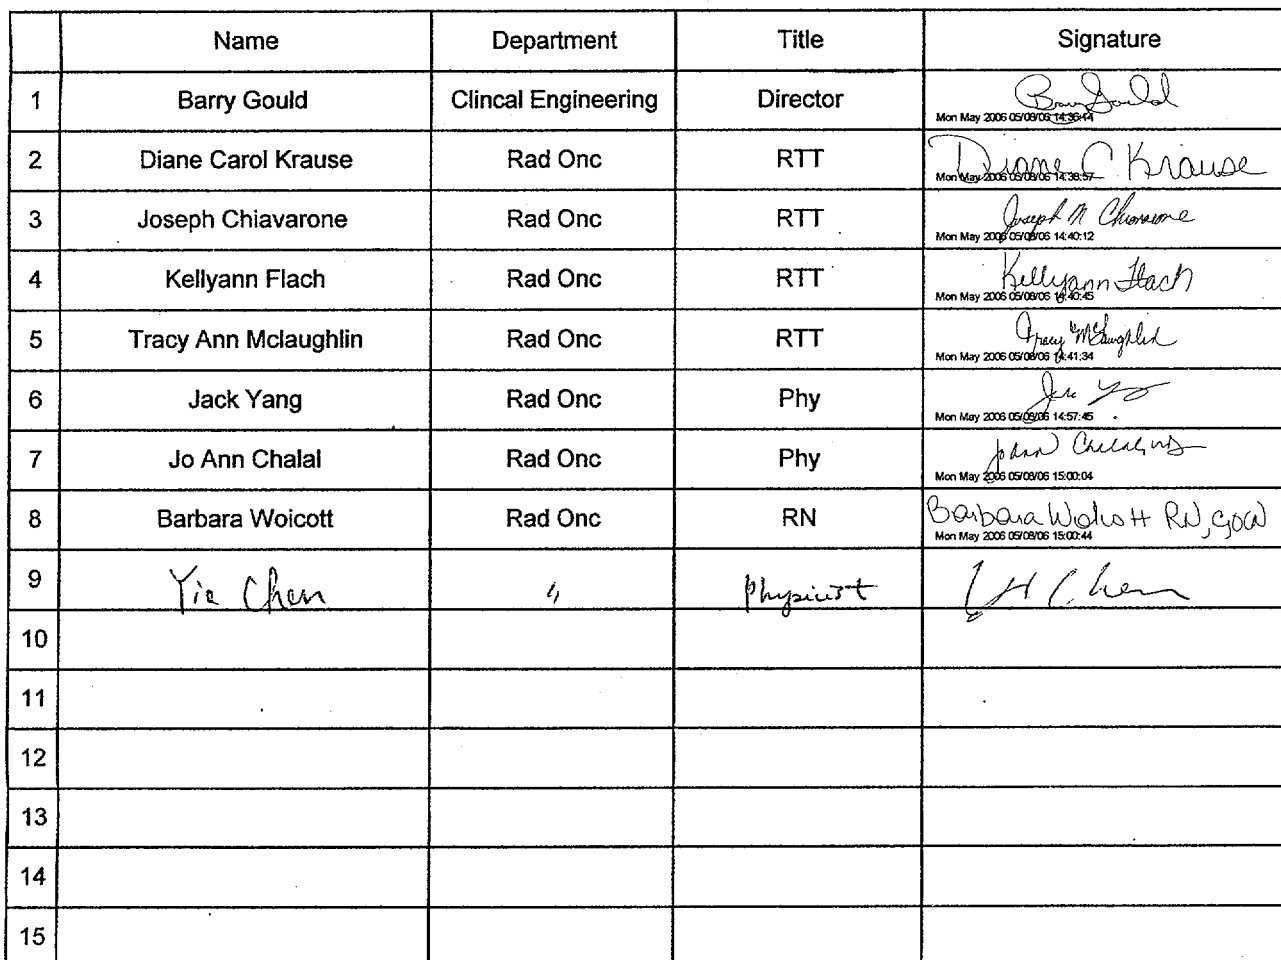 Name Department Title Signature
1 Barry Gould Clincal Engineering Director Barry Gould
Mon May 2006 05/08/06 14:36:14
2 Diane Carol Krause Rad Onc RTT Diane C Krause
Mon May 2006 05/08/06 14:38:57
3 Joseph Chiavarone Rad Onc RTT Joseph M Chiavarone
Mon May 2006 05/08/06 14:40:12
4 Kellyann Flach Rad Onc RTT Kellyann Flach
Mon May 2006 05/08/06 14:40:45
5 Tracy Ann Mclaughlin Rad Onc RTT Tracy McLaughlin
Mon May 2006 05/08/06 14:41:34
6 Jack Yang Rad Onc Phy
Mon May 2006 05/08/06 14:57:45
7 Jo Ann Chalal Rad Onc Phy
Mon May 2006 05/08/06 15:00:04
8 Barbara Woicott Rad Onc RN Barbara Wolcott RN,
Mon May 2006 05/08/06 15:00:44
9 Yie Chen " Physicist Y H Chen
10
11
12
13
14
15